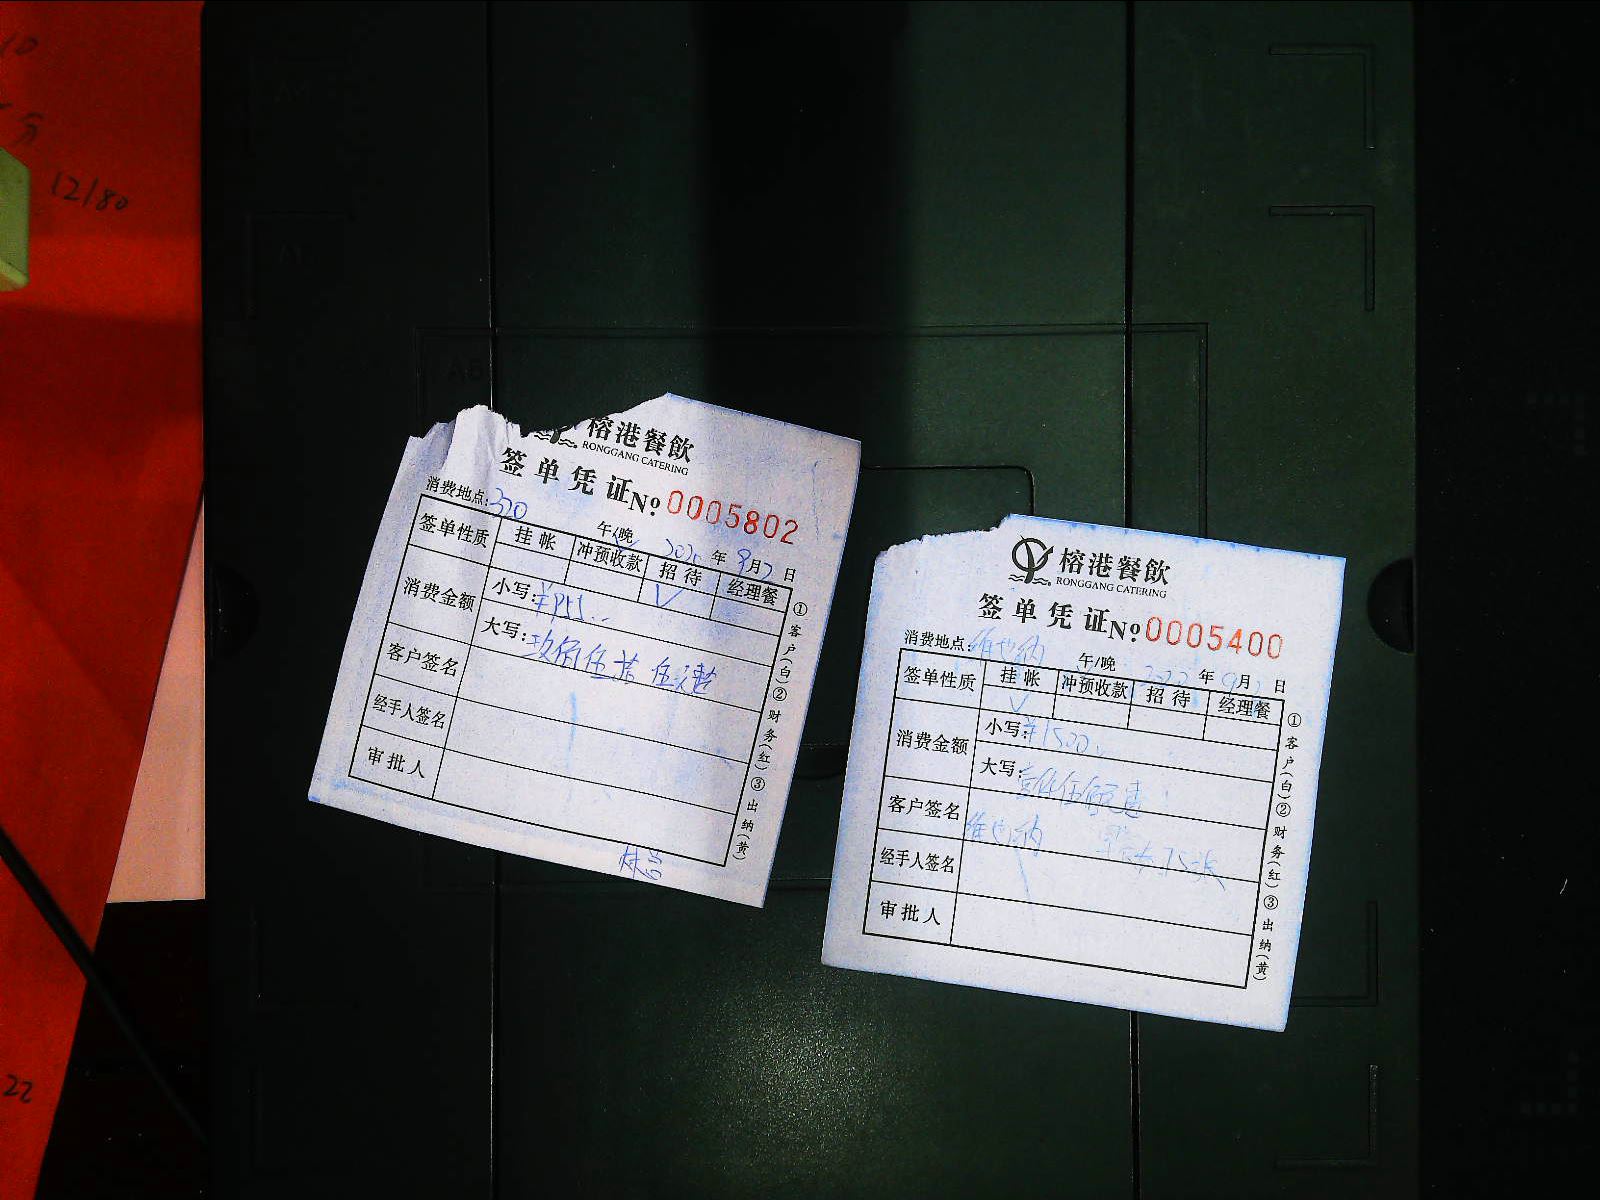 12/80
22
榕港餐飲
RONGGANG CATERING
签单凭证 № 0005802
消费地点: 320
午/晚 年 9月2日
签单性质 挂帐 冲预收款 招待 经理餐
√
消费金额 小写: ¥955..
大写: 玖佰伍拾伍元整
客户签名
经手人签名
审批人
①客户(白)②财务(红)③出纳(黄)
榕港餐飲
RONGGANG CATERING
签单凭证 № 0005400
消费地点: 维也纳
午/晚 年 9月 日
签单性质 挂帐 冲预收款 招待 经理餐
√
消费金额 小写: ¥1500.
大写: 壹仟伍佰元整
客户签名 维也纳 75张
经手人签名
审批人
①客户(白)②财务(红)③出纳(黄)